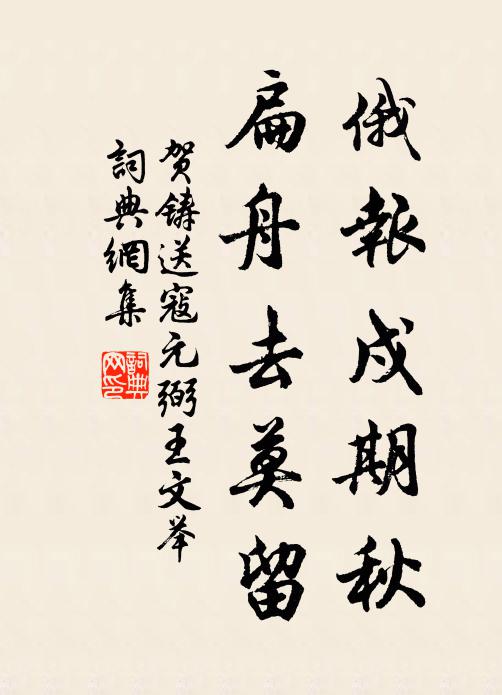 俄報戍期秋
扁舟去莫留
贺鑄送寇元弼王文举
詞典網集
詞典
网印